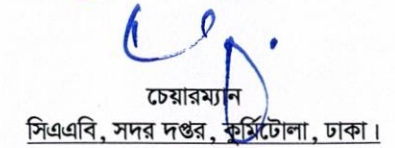 চেয়ারম্যান
সিএএবি, সদর দপ্তর, কুর্মিটোলা, ঢাকা।